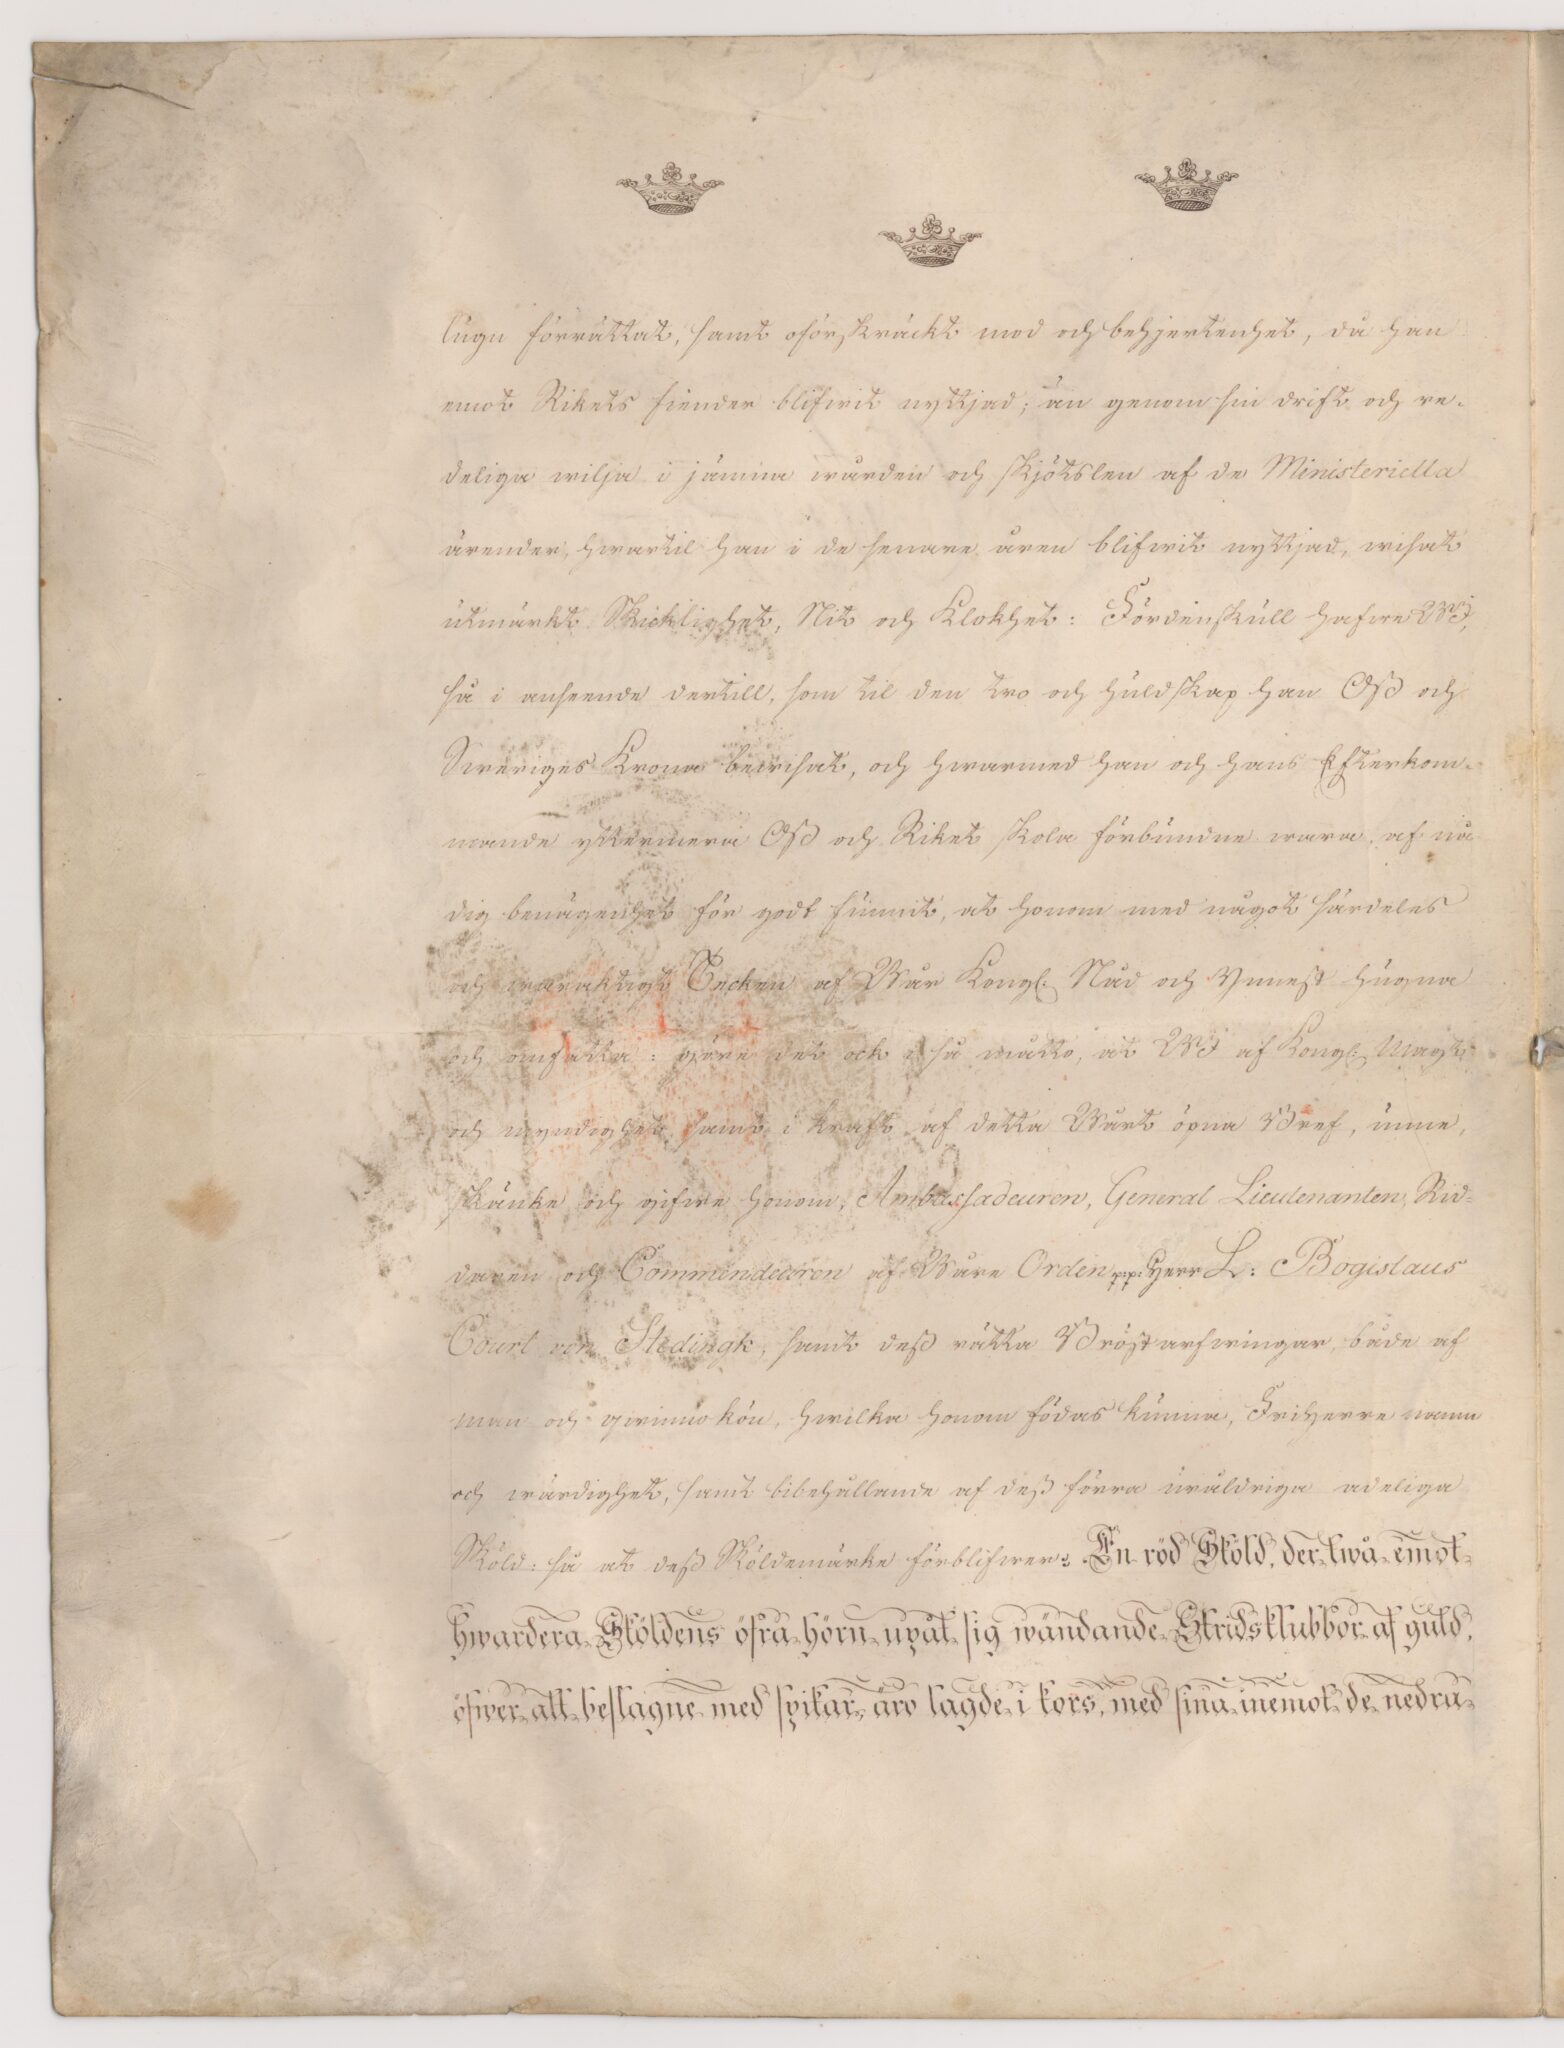 lugn förrättat, samt oförskräckt mod och behjertenhet, då han
emot Rikets fiender blifwit nyttjad; än genom sin drift och re-
deliga wilja i jämna wården och skjötslen af de Ministeriella
ärender, hwartil han i de senare åren blifwit nyttjad, wisat
utmärkt Skicklighet, Nit och Klokhet: Fördenskull hafwe Wi,
så i anseende dertill, som til den tro och huldskap han Oß och
Sweriges Krona bewisat, och hwarmed han och hans Efterkom-
mande yttermera Oß och Riket skola förbundne wara, af nå
dig benägenhet för godt funnit, at honom med något särdeles
och waraktigt Tecken af Wår Kongl: Nåd och Ynnest hugna
och omfatta: göre det ock i så matto, at Wi af Kongl: Magt
och myndighet, samt i kraft af detta Wårt öpna Bref, unne,
skänke och gifwe honom, Ambassadeuren, General Lieutenanten, Rid-
daren och Commendeuren af Wåre Orden p.p: Herr L: Bogislaus
Court von Stedingk, samt deß rätta Bröstarfwingar, både af
man och qwinno kön, hwilka honom födas kunna, Friherre namn
och wärdighet, samt bibehållande af deß förra uråldriga adeliga
Sköld: så at deß Sköldemärke förblifwer: En röd Sköld, der twå emot
hwardera Sköldens öfra hörn upåt sig wändande Stridsklubbor af guld,
öfwer alt beslagne med spikar, äro lagde i kors, med sina inemot de nedru